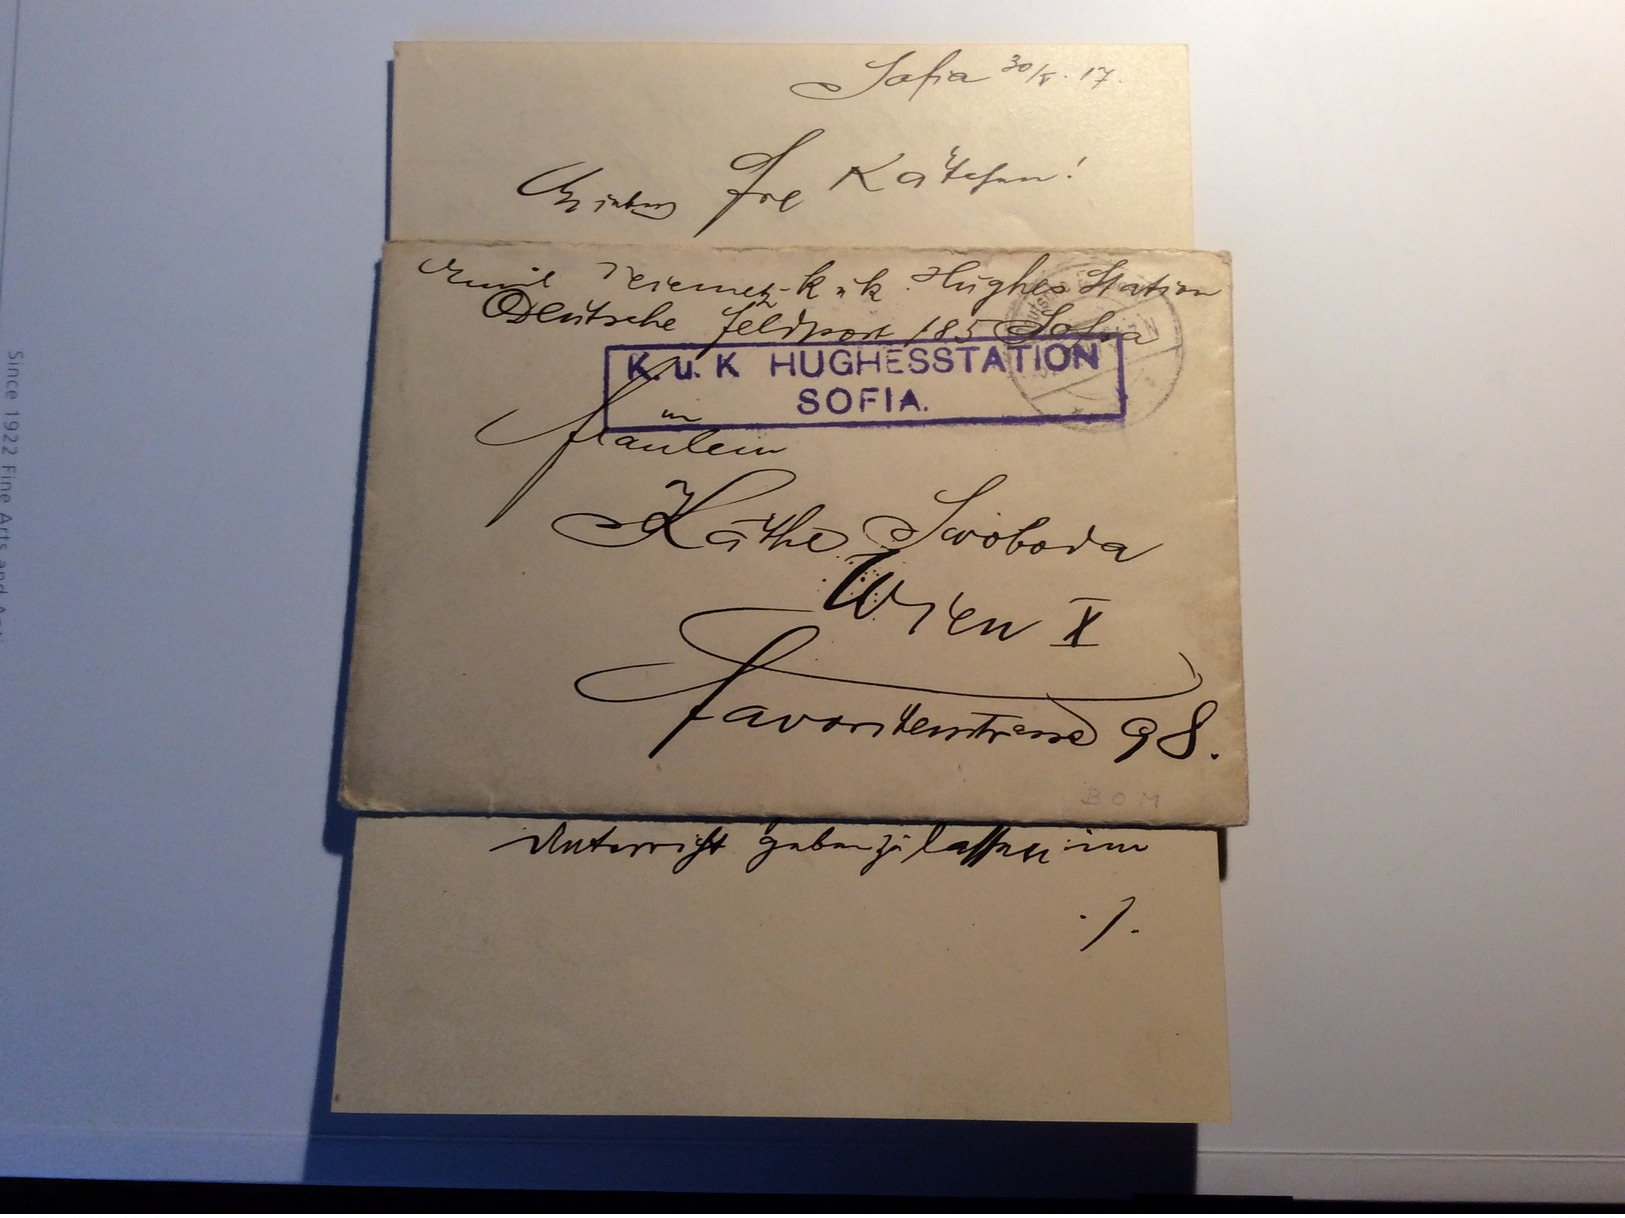 Sofia 30/V. 17.
Frl Kätchen!
Emil k u k. Hughes Station
Deutsche Feldpost 185 Sofia
K. u. K HUGHESSTATION
SOFIA.
Fräulein
Käthe Swoboda
Wien X
Favoritenstrasse 98.
BOM
Unterricht geben zu lassen im
./.
Since 1922 Fine Arts and